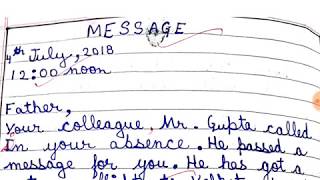 MESSAGE
4th July, 2018
12:00 noon
Father,
Your colleague, Mr. Gupta called
In your absence. He passed a
message for you. He has got a